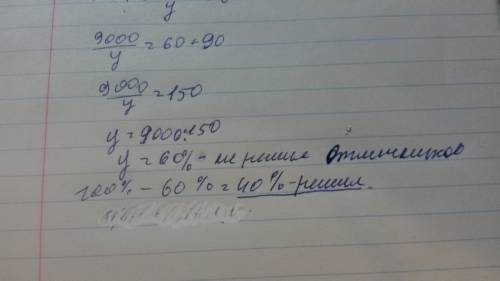 y
9000/y = 60+90
9000/y = 150
y = 9000:150
y = 60% - не решил отличников
100% - 60% = 40% - решил.